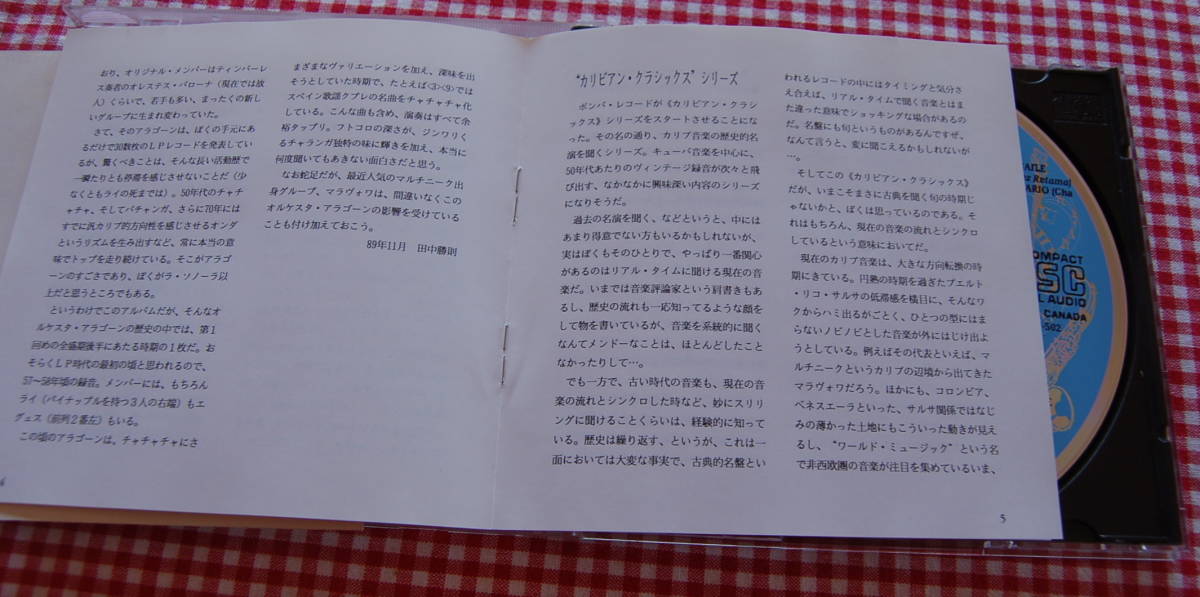 おり、オリジナル・メンバーはティンバーレ
ス奏者のオレステス・バローナ(現在では故
人)くらいで、若手も多い、まったくの新し
いグループに生まれ変わっていた。
さて、そのアラゴーンは、ぼくの手元にあ
るだけで30数枚のLPレコードを発表してい
るが、驚くべきことは、そんな長い活動歴で
一瞬たりとも停滞を感じさせないことだ(少
なくともライの死までは)。50年代のチャチ
ャチャ、そしてパチャンガ、さらに70年には
すでに汎カリブ的方向性を感じさせるオンダ
というリズムを生み出すなど、常に本当の意
味でトップを走り続けている。そこがアラゴ
ーンのすごさであり、ぼくがラ・ソノーラ以
上だと思うところでもある。
というわけでこのアルバムだが、そんなオ
ルケスタ・アラゴーンの歴史の中では、第1
回めの全盛期後半にあたる時期の1枚だ。お
そらくLP時代の最初の頃と思われるので、
57〜58年頃の録音。メンバーには、もちろん
ライ(パイナップルを持つ3人の右端)もエ
グェス(前列2番左)もいる。
この頃のアラゴーンは、チャチャチャにさ
まざまなヴァリエーションを加え、深味を出
そうとしていた時期で、たとえば〈3〉〈9〉では
スペイン歌謡クプレの名曲をチャチャチャ化
している。こんな曲も含め、演奏はすべて余
裕タップリ。フトコロの深さが、ジンワリく
るチャランガ独特の味に輝きを加え、本当に
何度聞いてもあきない面白さだと思う。
なお蛇足だが、最近人気のマルチニーク出
身グループ、マラヴォワは、間違いなくこの
オルケスタ・アラゴーンの影響を受けている
ことも付け加えておこう。
89年11月 田中勝則
“カリビアン・クラシックス”シリーズ
ボンバ・レコードが《カリビアン・クラシ
ックス》シリーズをスタートさせることにな
った。その名の通り、カリブ音楽の歴史的名
演を聞くシリーズ。キューバ音楽を中心に、
50年代あたりのヴィンテージ録音が次々と飛
び出す、なかなかに興味深い内容のシリーズ
になりそうだ。
過去の名演を聞く、などというと、中には
あまり得意でない方もいるかもしれないが、
実はぼくもそのひとりで、やっぱり一番関心
があるのはリアル・タイムに聞ける現在の音
楽だ。いまでは音楽評論家という肩書きもあ
るし、歴史の流れも一応知ってるような顔を
して物を書いているが、音楽を系統的に聞く
なんてメンドーなことは、ほとんどしたこと
なかったりして…。
でも一方で、古い時代の音楽も、現在の音
楽の流れとシンクロした時など、妙にスリリ
ングに聞けることくらいは、経験的に知って
いる。歴史は繰り返す、というが、これは一
面においては大変な事実で、古典的名盤とい
われるレコードの中にはタイミングと気分さ
え合えば、リアル・タイムで聞く音楽とはま
た違った意味でショッキングな場合があるの
だ。名盤にも旬というものがあるんですぜ、
なんて言うと、変に聞こえるかもしれないが
…。
そしてこの《カリビアン・クラシックス》
だが、いまこそまさに古典を聞く旬の時期じ
ゃないかと、ぼくは思っているのである。そ
れはもちろん、現在の音楽の流れとシンクロ
しているという意味においてだ。
現在のカリブ音楽は、大きな方向転換の時
期にきている。円熟の時期を過ぎたプエルト
・リコ・サルサの低滞感を横目に、そんなワ
クからハミ出るがごとく、ひとつの型にはま
らないノビノビとした音楽が外にはじけ出よ
うとしている。例えばその代表といえば、マ
ルチニークというカリブの辺境から出てきた
マラヴォワだろう。ほかにも、コロンビア、
ベネスエーラといった、サルサ関係ではなじ
みの薄かった土地にもこういった動きが見え
るし、“ワールド・ミュージック”という名
で非西欧圏の音楽が注目を集めているいま、
5
AILE
ez Retama)
ARIO (Cha
COMPACT
DISC
AL AUDIO
CANADA
-502